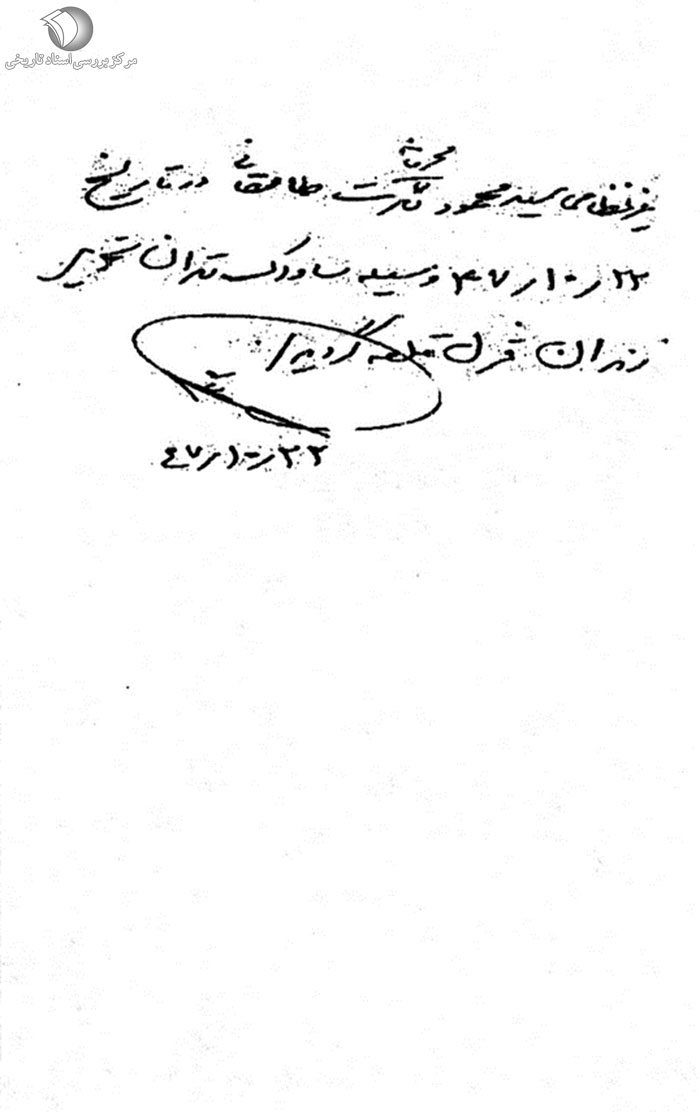 مرکز بررسی اسناد تاریخی
محرمانه
غیرنظامی سید محمود طالقانی در تاریخ
۲۳ر۱۰ر۴۷ وسیله ساواک تهران تحویل
زندان قزل قلعه گردید.
۲۳ر۱۰ر۴۷